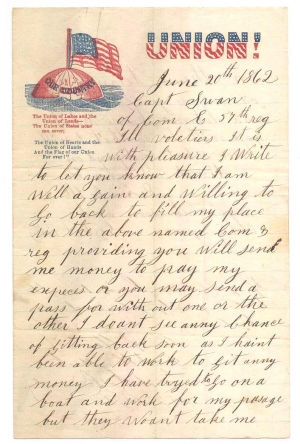 UNION!
OUR COUNTRY
The Union of Lakes and the
Union of Lands—
The Union of States none
can sever;
The Union of Hearts and the
Union of Hands
And the Flag of our Union
For ever!
June 20th 1862
Capt Swan
of Com C. 57th reg
Ill voletiers it is
with pleasure I Write
to let you know that I am
Well a gain and Willing to
Go back to fill my place
in the above named Com &
reg providing you Will send
me money to pay my
expeces or you may send a
pass for with out one or the
other I doant see anny Chance
of gitting back soon as I haint
been able to work to git anny
money I have tryed to go on a
boat and work for my passage
but they Woant take me